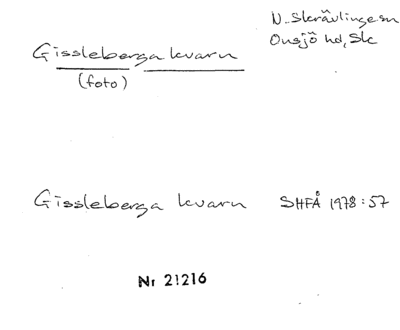 N. Skrävlinge sn
Onsjö hd, Sk
Gissleberga kvarn
(foto)
Gissleberga kvarn SHFÅ 1978:57
Nr 21216